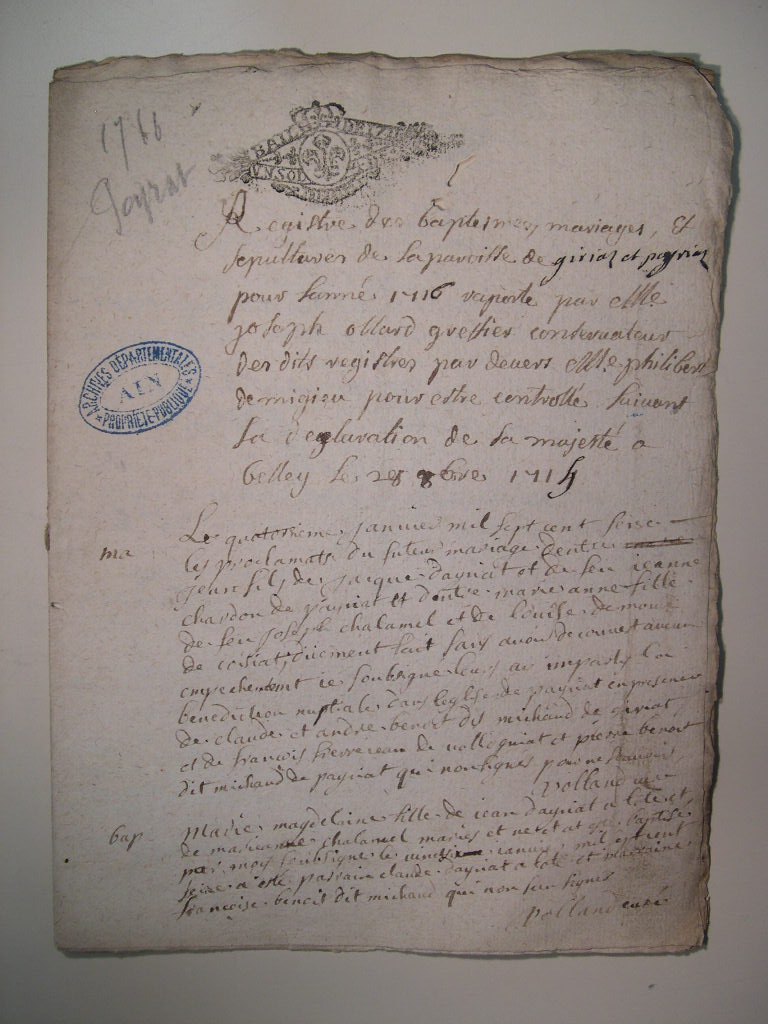 1716
Peyriat
BAIL DE 1715
UN SOL
1
Registre des baptesmes, mariages, et
sepultures de la paroisse de giriat et peyriat
pour lanné 1716 raporté par Me
Joseph ollard greffier conservateur
des dits registres par devers Me philibert
de migieu pour estre controllé suivant
la declaration de sa majesté a
belley le 28 8bre 1715
ARCHIVES DÉPARTEMENTALES
AIN
PROPRIÉTÉ PUBLIQUE
ma
Le quatorsieme janvier mil sept cent seise
les proclamats du futeur mariage dentre
jean fils de jacque dayriat et de feu jeanne
chardon de payriat et dentre marie anne fille
de feu joseph chalamel et de louise
de corsiat duement fait sans avoir decouvert aucun
empechement ie soubsigné leurs ay imparti la
benediction nuptiale dans leglise de payriat en presence
de claude et andre benoit dit michaud de giriat
et de francois pierre jean de vollogniat et pierre benoit
dit michaud de payriat qui non signes pour ne scavoir
rolland curé
bap
Marie magdelaine fille de jean dayriat a lote et
de marianne chalamel maries et baptisé
par moy soubsigné le janvier mil sept cent
seize a esté parrain claude dayriat a lote et marraine
francoise benoit dit michaud qui non sceu signes
rolland curé